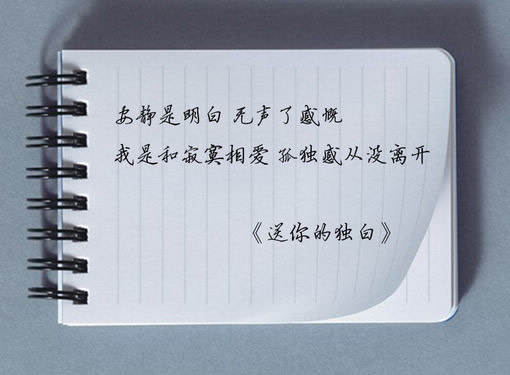 安静是明白 无声了感慨
我是和寂寞相爱 孤独感从没离开
《送你的独白》